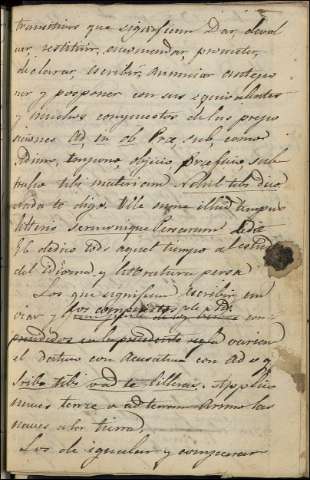 transitivos que significan Dar, deval
uar, restituir, encomendar, prometer,
declarar, escribir, anunciar antepo
ner y posponer con sus equivalentes
y muchos compuestos de las prepo
siciones Ad, in ob Præ, sub, como
Addeno, impono, objicio, præficio, sub
traho tibi materiam Nihil tibi dico
nada te digo. Ille omne illud tempus
litteris sermonique Persarum dedit
El dedicó todo aquel tiempo al estudio
del idioma y literatura persa
Los que significan escribir, en
viar y los compuestos com
prendidos en la precedente regla varian
el dativo con Acusativo con Ad v. g.
Scribo tibi v. ad te litteras. Applico
naves terræ v. ad terram Arrimo las
naves a la tierra.
Los de igualar y comparar